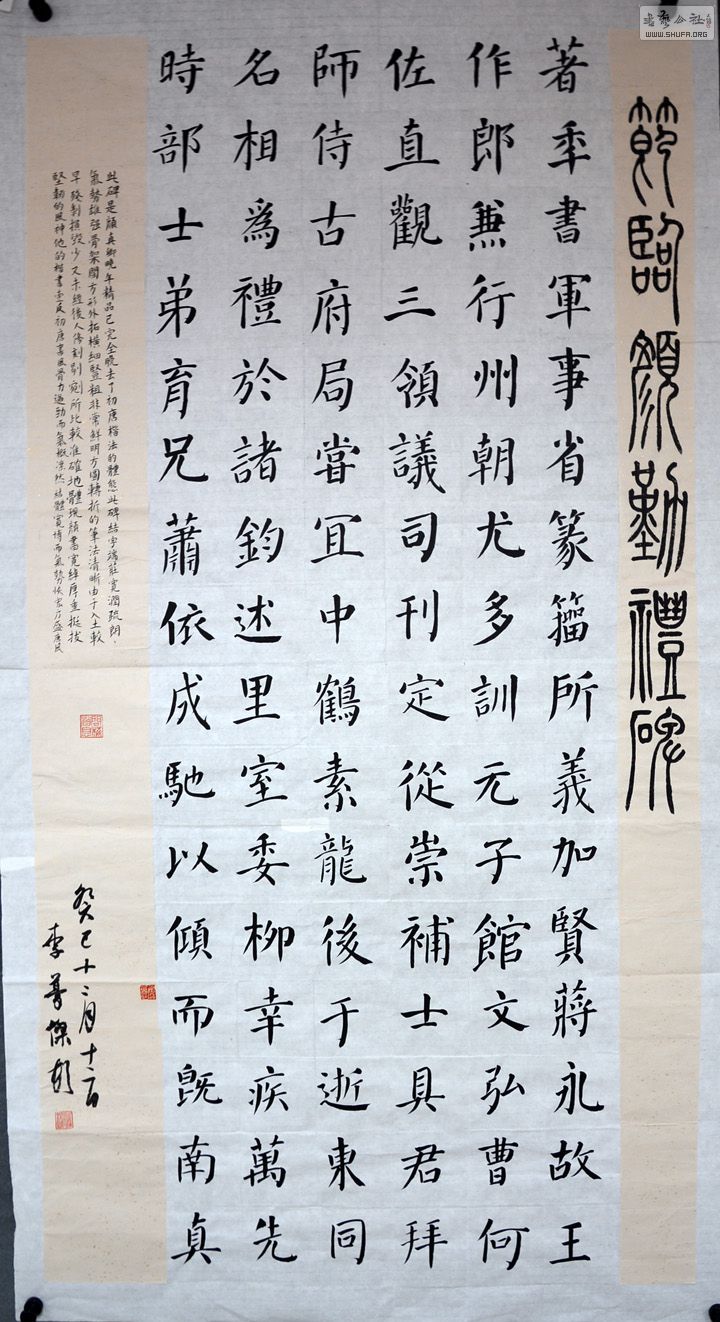 書藝公社
WWW.SHUFA.ORG
節臨顏勤禮碑
著秊書軍事省篆籀所義加賢蔣永故王
作郎兼行州朝尤多訓元子館文弘曹何
佐直觀三領議司刊定從崇補士具君拜
師侍古府局嘗宜中鶴素龍後于逝東同
名相為禮於諸鈞述里室委柳幸疾萬先
時部士弟育兄蕭依成馳以傾而既南真
此碑是顏真卿晚年精品已完全脫去了初唐楷法的體態此碑結字端莊寬濶疏朗、
氣勢雄強骨架開方形外拓橫細豎粗非常鮮明方圓轉折的筆法清晰由于入土較
早殘剝損毀少又未經後人修刻剔剜所比較准確地體現顏書寬綽厚重挺拔
堅韌的風神他的楷書壹反初唐書風骨力遒勁而氣概凜然結體寬博而氣勢恢宏乃盛唐風
癸巳十二月十二日
李